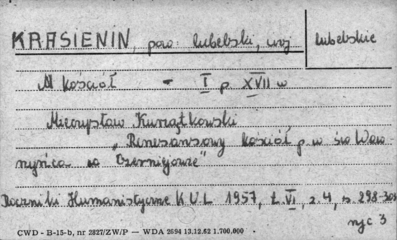 KRASIENIN, pow. lubelski, woj lubelskie
M kościół - I p XVII w
Mieczysław Kurzątkowski
"Renesansowy kościół p.w św Waw
rzyńca w Czerniejowie"
Roczniki Humanistyczne K.U.L 1957, t. VI, z. 4, s. 298-
ryc 3
CWD - B-15-b, nr 2827/ZW/P — WDA 2694 13.12.62 1.700.000